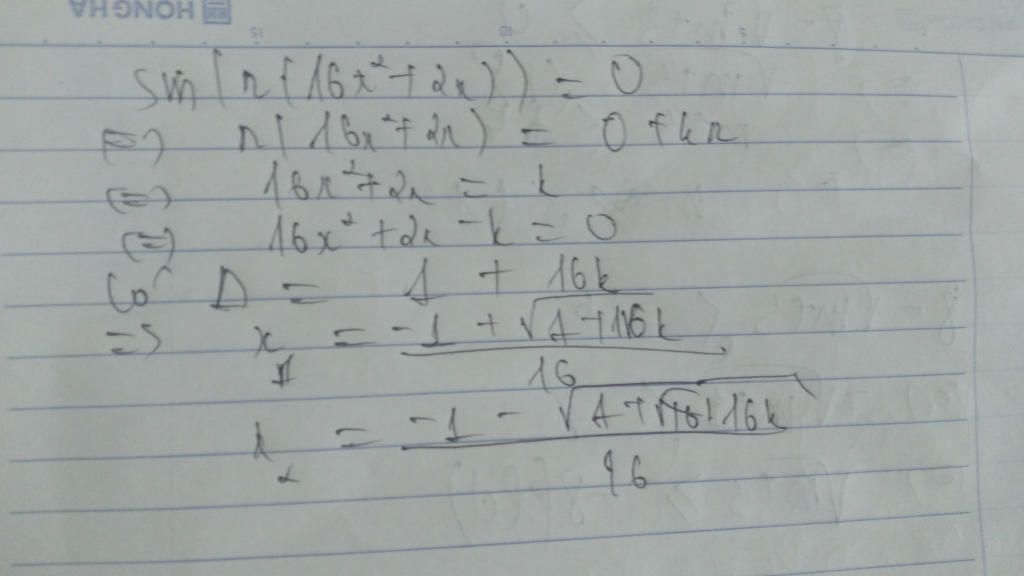 HONGHA
15 10 5
sin(π(16x²+2x)) = 0
(=) π(16x²+2x) = 0 + kπ
(=) 16x²+2x = k
(=) 16x²+2x-k=0
Có Δ = 1 + 16k
=> x₁ = (-1 + √(1+16k))/16
x₂ = (-1 - √(1+16k))/16